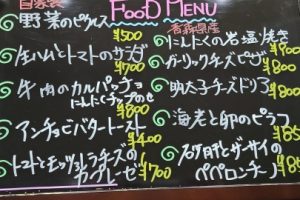 自家製
FOOD MENU
野菜のピクルス
¥500
生ハムとトマトのサラダ
¥700
牛肉のカルパッチョ
にんにくチップのせ
¥800
アンチョビバタートースト
¥400
トマトとモッツァレラチーズの
カプレーゼ ¥700
香川県産
にんにくの岩塩焼き
ガーリックチーズピザ
明太子チーズドリア
海老と卵のピラフ
ザーサイの
ペペロンチーノ